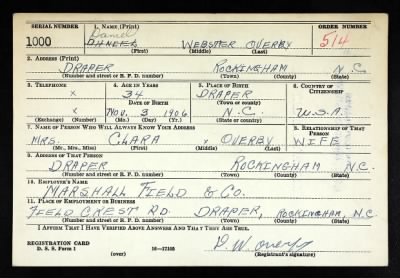 SERIAL NUMBER 1. NAME (Print) ORDER NUMBER
1000 Daniel WEBSTER OVERBY 514
(First) (Middle) (Last)
2. ADDRESS (Print)
DRAPER ROCKINGHAM N.C.
(Number and street or R. F. D. number) (Town) (County) (State)
3. TELEPHONE 4. AGE IN YEARS 5. PLACE OF BIRTH 6. COUNTRY OF CITIZENSHIP
x 34 DRAPER
DATE OF BIRTH (Town or county)
x NOV. 3 1906 N.C. U.S.A.
(Exchange) (Number) (Mo.) (Day) (Yr.) (State or country)
7. NAME OF PERSON WHO WILL ALWAYS KNOW YOUR ADDRESS 8. RELATIONSHIP OF THAT PERSON
MRS. CLARA OVERBY WIFE
(Mr., Mrs., Miss) (First) (Middle) (Last)
9. ADDRESS OF THAT PERSON
DRAPER ROCKINGHAM N.C.
(Number and street or R. F. D. number) (Town) (County) (State)
10. EMPLOYER'S NAME
MARSHALL FIELD & CO.
11. PLACE OF EMPLOYMENT OR BUSINESS
FIELD CREST RD. DRAPER, ROCKINGHAM, N.C.
(Number and street or R. F. D. number) (Town) (County) (State)
I AFFIRM THAT I HAVE VERIFIED ABOVE ANSWERS AND THAT THEY ARE TRUE.
REGISTRATION CARD
D. S. S. Form 1 16—17105 D. W. Overby
(Registrant's signature)